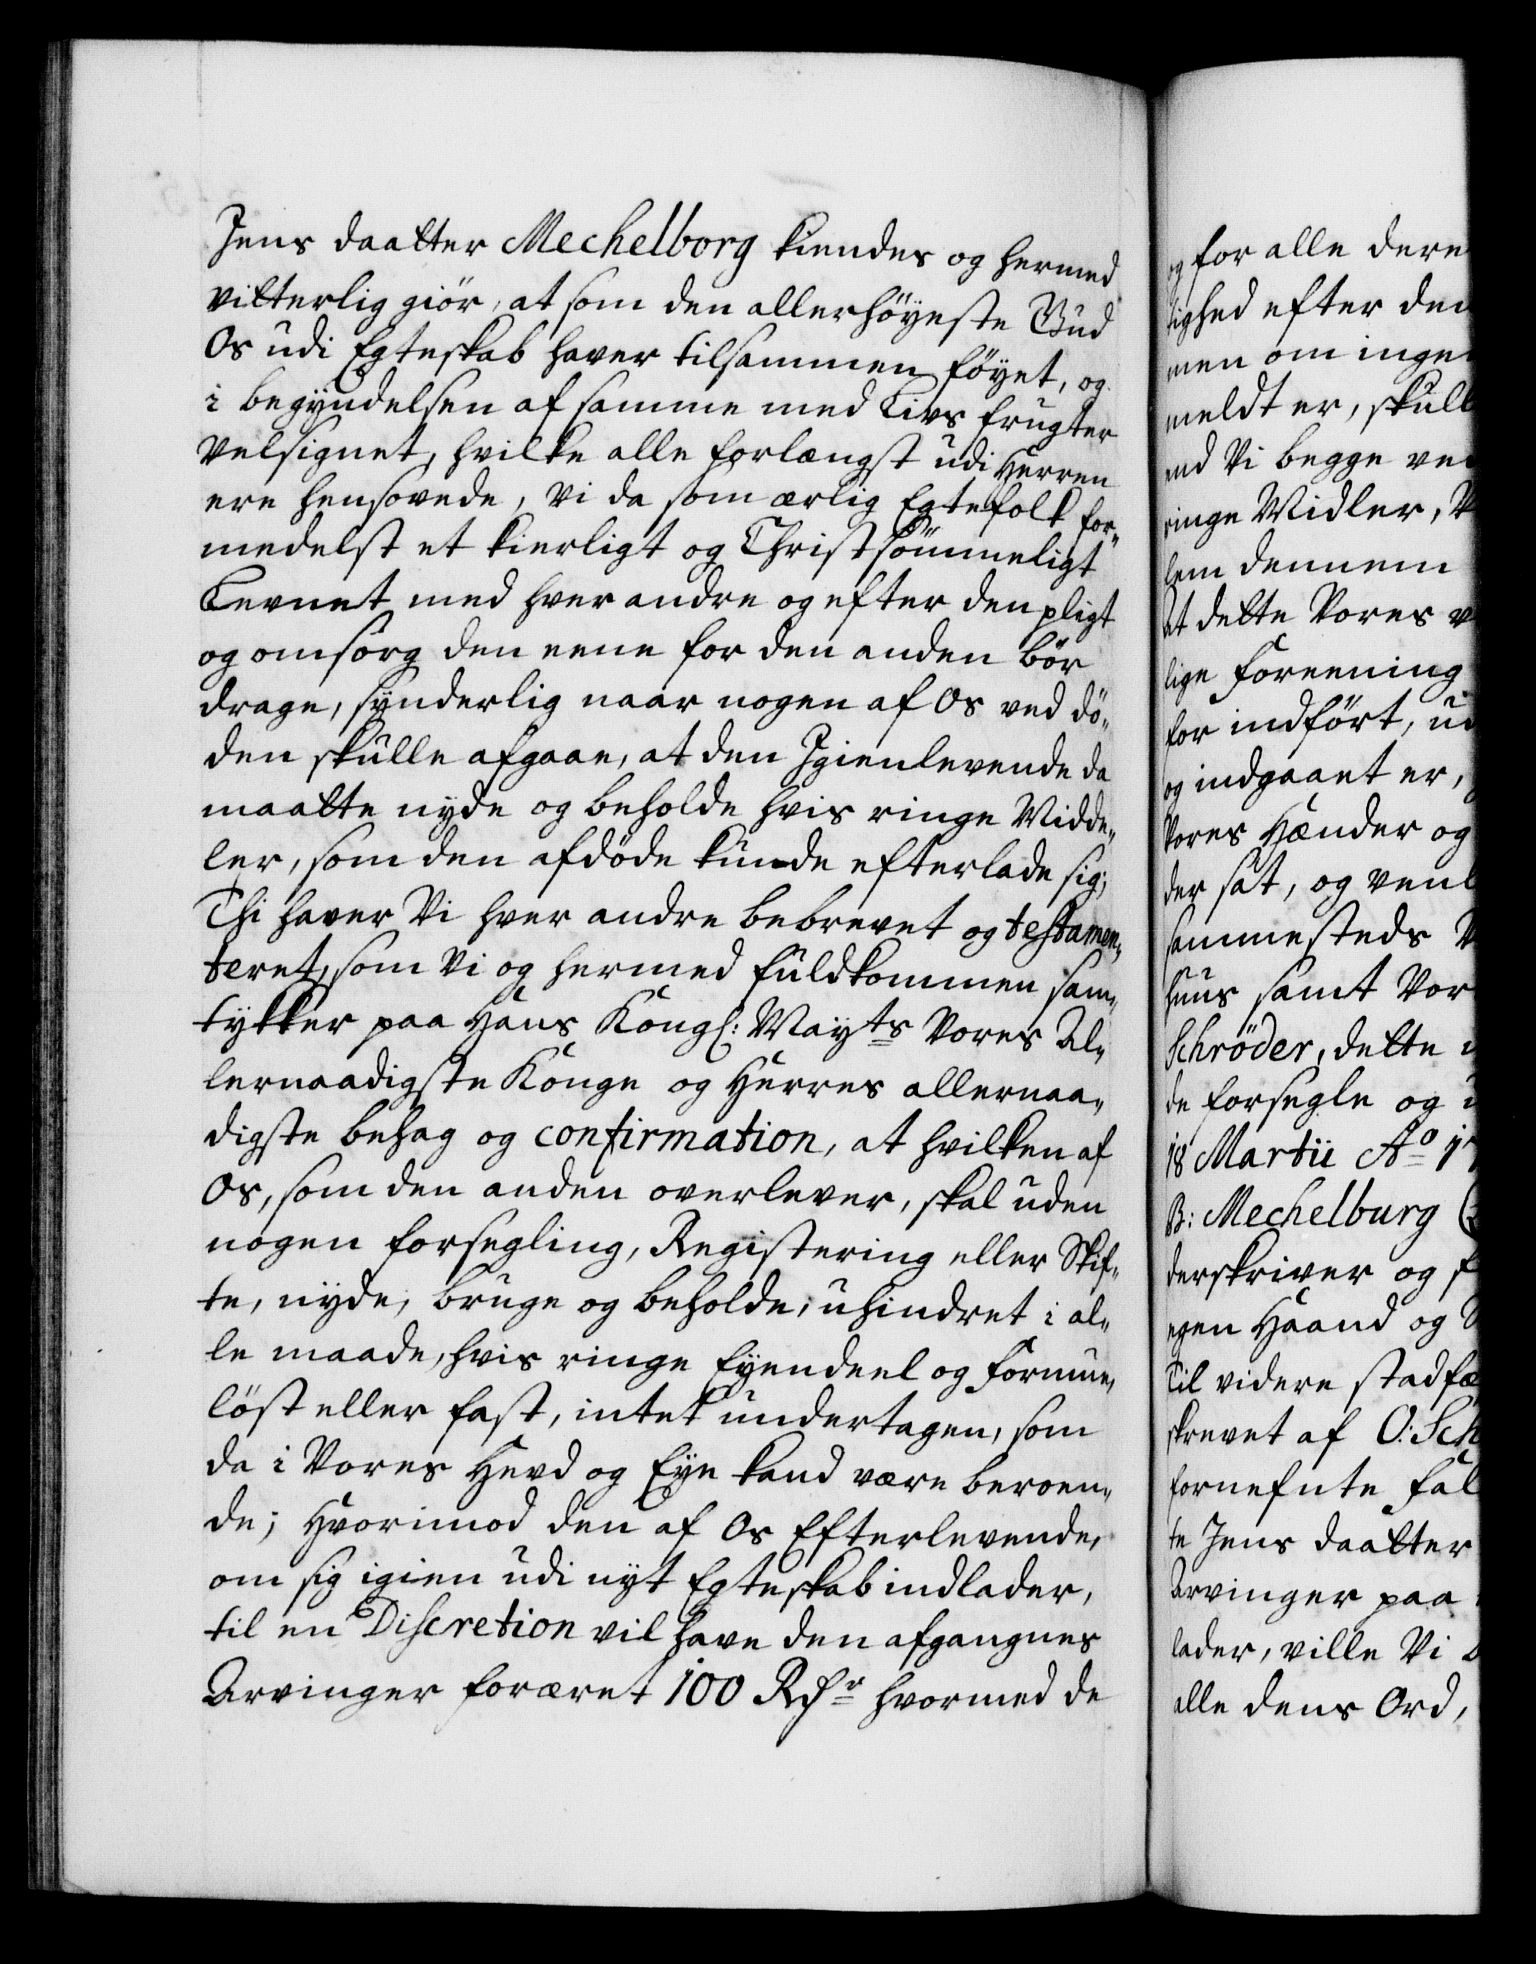 Jens daatter Mechelborg kiendes og hermed
vitterlig giör, at som den allerhöyeste Gud
Os udi Egteskab haver tilsammen föyet, og
i begyndelsen af samme med Livs frugter
velsignet, hvilke alle forlængst udi Herren
ere hensovede, Vi da som ærlig Egtefolk for„
medelst et kierligt og Christsömmeligt
Levnet med hver andre og efter den pligt
og omsorg den eene for den anden bör
drage, synderlig naar nogen af Os ved dö„
den skulle afgaae, at den Igienlevende da
maatte nyde og beholde hvis ringe Midde„
ler, som den afdöde kunde efterlade sig;
Thi haver Vi hver andre bebrevet og testamen„
teret, som Vi og hermed fuldkommen sam„
tykker paa Hans Kongl: Mayts Vores Al„
lernaadigste Konge og Herres allernaa„
digste behag og confirmation, at hvilken af
Os, som den anden overlever, skal uden
nogen forsegling, Registering eller Skif„
te, nyde, bruge og beholde, uhindret i al„
le maade, hvis ringe Eyendeel og formue,
löst eller fast, intet undertagen, som
da i Vores Hævd og Eye kand være beroen„
de; Hvorimod den af Os Efterlevende,
om sig igien udi nyt Egteskab indlader,
til en Discretion vil have den afgangnes
Arvinger foræret 100 Rdr hvormed de
og for alle dere
lighed efter den
men om inge
meldt er, skull
end Vi begge ve
ringe Midler, V
lem dennem
At dette Vores v
lige foreening
for indfört, ud
og indgaaet er,
Vores Hænder og
der sat, og venl
sammesteds V
huus samt Vor
Schröder, dette
de forsegle og u
18 Martii Ao 17
B: Mechelburg (
derskriver og f
egen Haand og S
Til videre stadfæ
skrevet af O: Sch
fornefnte fal
te Jens daatter
Arvinger paa
lader, ville Vi
alle dens Ord,